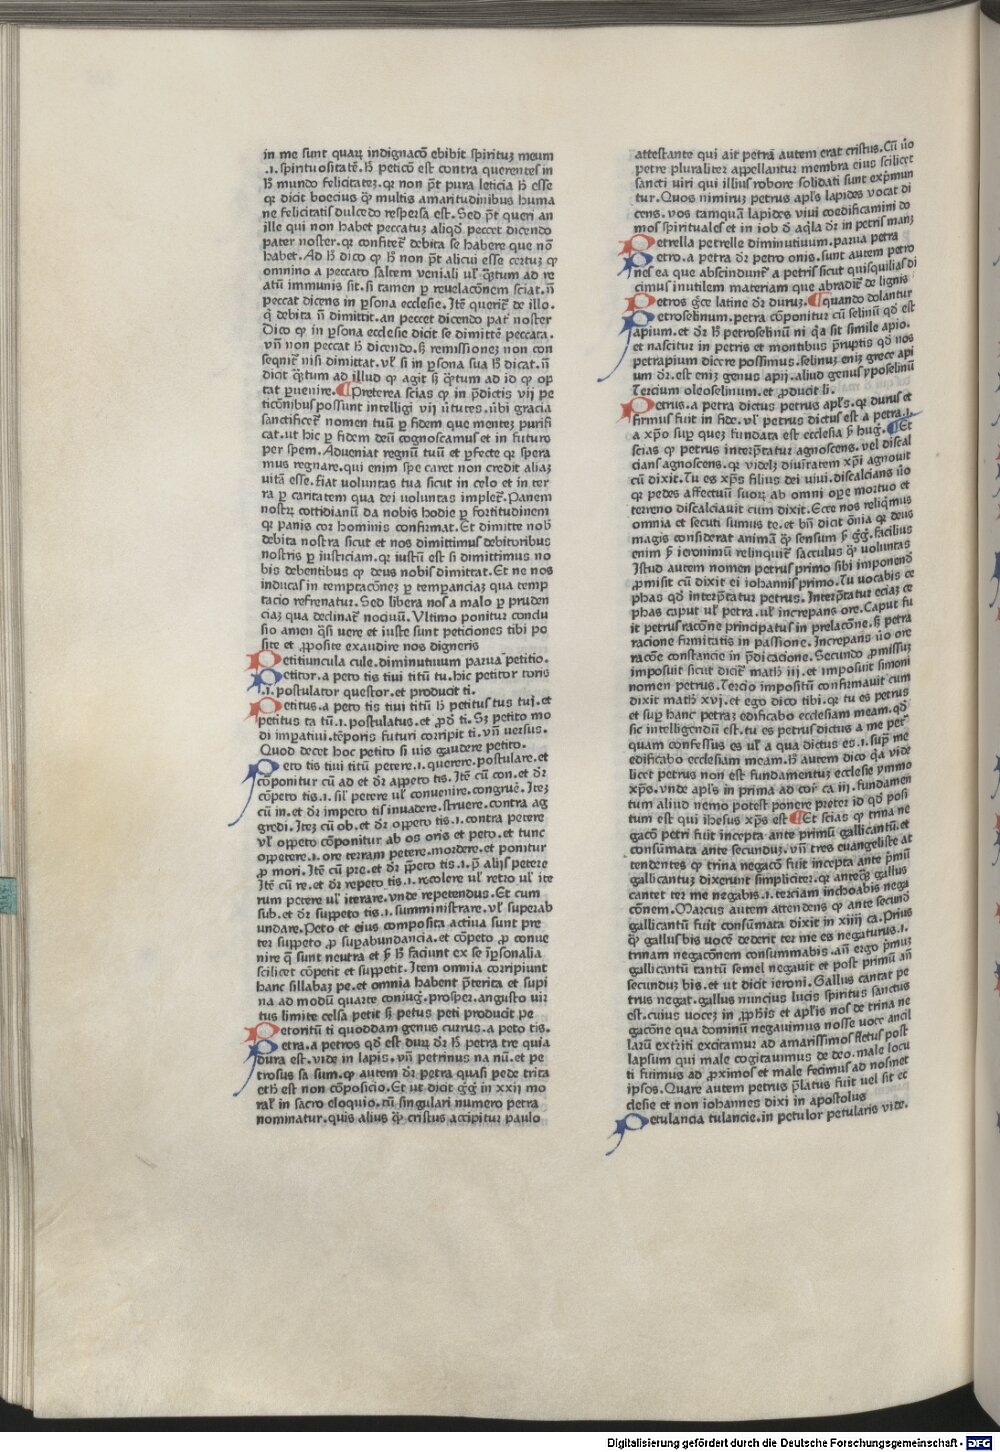 in me sunt quaꝝ indignacōn ebibit spirituꝫ meum
.i. spirituositatē. H̄ peticō est contra querentes in
h̄ mundo felicitateꝫ. qꝛ non pōt pura leticia h̄ esse
qꝛ dicit boecius ꝙ multis amaritudinibus huma
ne felicitatis dulcedo respersa est. Sed pōt queri an
ille qui non habet peccatuꝫ aliqđ peccet dicendo
pater noster. qꝛ confiteť debita se habere que nō
habet. Ad h̄ dico ꝙ h̄ non pōt alicui esse certuꝫ ꝙ
omnino a peccato saltem veniali uľ ꝗ̄tum ad re
atū immunis sit. si tamen ꝑ revelacōnem sciat. n̄
peccat dicens in ꝑsona ecclesie. Itē queriť de illo.
ꝗ debita n̄ dimittit. an peccet dicendo pať noster
Dico ꝙ in ꝑsona ecclesie dicit se dimittē peccata.
vn̄ non peccat h̄ dicendo. ꝫ remissioneꝫ non con
sequiť nisi dimittat. vľ si in ꝑsona sua h̄ dicat. n̄
dicit ꝗ̄tum ad illud ꝙ agit ꝫ ꝗ̄tum ad id ꝙ op
tat ꝑuenire. ¶Preterea scias ꝙ in p̄dictis vij pe
ticōnibus possunt intelligi vij ūtutes. ubi gracia
sanctificeť nomen tuū ꝑ fidem que menteꝫ purifi
cat. ut hic ꝑ fidem deū cognoscamus et in futuro
per spem. Adueniat regnū tuū et ꝑfecte qꝛ spera
mus regnare. qui enim spe caret non credit aliaꝫ
vitā esse. fiat voluntas tua sicut in celo et in ter
ra ꝑ caritatem qua dei uoluntas impleť. Panem
nostrꝫ cottidianū da nobis hodie ꝑ fortitudinem
qꝛ panis cor hominis confirmat. Et dimitte nob̄
debita nostra sicut et nos dimittimus debitoribus
nostris ꝑ iusticiam. qꝛ iustū est si dimittimus no
bis debentibus ꝙ deus nobis dimittat. Et ne nos
inducas in temptacōneꝫ ꝑ temꝑanciaꝫ qua temp
tacio refrenatur. Sed libera nos a malo ꝑ pruden
ciaꝫ qua declinať nociuū. Vltimo ponitur conclu
sio amen ꝗ̄si uere et iuste sunt peticiones tibi po
site et ꝓposite exaudire nos digneris
Petitiuncula cule. diminutiuum parua petitio.
Petitor. a peto tis tiui titū tu. hic petitor toris
.i. postulator questor. et producit ti.
Petitus. a peto tis tiui titū h̄ petitus tus tuj. et
petitus ta tū .i. postulatus. et ꝓđ ti. Sꝫ petito mo
di imꝑatiui. tēporis futuri corripit ti. vn̄ uersus.
Quod decet hoc petito si uis gaudere petito.
Peto tis tiui titū petere .i. querere. postulare. et
cōponitur cū ad et đr appeto tis. Itē cū con. et đr
cōpeto tis .i. sil' petere uľ conuenire. congruē. Iteꝫ
cū in. et đr impeto tis inuadere. struere. contra ag
gredi. Iteꝫ cū ob. et đr oppeto tis .i. contra petere
vľ oppeto cōponitur ab os oris et peto. et tunc
oppetere .i. ore terram petere. mordere. et ponitur
ꝓ mori. Itē cū pre. et đr p̄peto tis .i. p̄ alijs petere
Itē cū re. et đr repeto tis .i. recolere uľ retro uľ ite
rum petere uľ iterare. vnde repetendus. Et cum
sub. et đr suppeto tis .i. sumministrare. vľ superab
undare. Peto et eius composita actiua sunt pre
ter suppeto ꝓ suꝑabundancia. et cōpeto ꝓ conue
nire ꝗ sunt neutra et ꝟ h̄ faciunt ex se īꝑsonalia
scilicet cōpetit et suppetit. Item omnia corripiunt
hanc sillabaꝫ pe. et omnia habent p̄terita et supi
na ad modū quarte coniug̉. prosper. angusto uir
tus limite celsa petit s̄ petus peti producit pe
Petoritū ti quoddam genus currus. a peto tis.
Petra. a petros qđ est duꝝ đr h̄ petra tre quia
dura est. vide in lapis. vn̄ petrinus na nū. et pe
trosus sa sum. ꝙ autem đr petra quasi pede trita
eth̄ est non cōposicio. Et ut dicit gͥgͥ in xxij mo
ral' in sacro eloquio. cū singulari numero petra
nominatur. quis alius ꝗ̄ cristus accipitur paulo
attestante qui ait petrā autem erat cristus. Cū ūo
petre pluraliter appellantur membra eius scilicet
sancti uiri qui illius robore solidati sunt exp̄mun
tur. Quos nimiruꝫ petrus apľs lapides vocat di
cens. vos tamquā lapides viui coedificamini do
mos spirituales et in iob đ aq̄la đr in petris manꝫ
Petrella petrelle diminutiuum. parua petra
Petro. a petra đr petro onis. sunt autem petro
nes ea que abscinduntʳ a petris sicut quisquilias di
cimus inutilem materiam que abradiť de lignis
Petros gͥce latine đr duruꝫ. ¶quando dolantur
Petroselinum. petra cōponitur cū selinū qđ est
apium. et đr h̄ petroselinū ni ꝗa sit simile apio.
et nascitur in petris et montibus p̄ruptis qđ nos
petrapium dicere possimus. selinuꝫ eniꝫ grece api
um đr. est eniꝫ genus apij. aliud genus yposelinū
Tercium oleoselinum. et ꝓducit li.
Petrus. a petra dictus petrus apľs. qꝛ durus et
firmus fuit in fide. vľ petrus dictus est a petra .i.
a xp̄o sup̄ queꝫ fundata est ecclesia ẜ hug̉. ¶Et
scias ꝙ petrus interp̄tatur agnoscens. vel discal
cians agnoscens. qꝛ videlꝫ diuītatem xp̄i agnouit
cū dixit. Tu es xp̄s filius dei uiui. discalcians ūo
qꝛ pedes affectuū suoꝝ ab omni oꝑe mortuo et
terreno discalciauit cum dixit. Ecce nos reliq̄mus
omnia et secuti sumus te. et bn̄ dicit ōnia qꝛ deus
magis considerat animā ꝗ̄ sensum ẜ gͥgͥ. facilius
enim ẜ ieronimū relinquiť sacculus ꝗ̄ uoluntas
Istud autem nomen petrus primo sibi imponend̄
ꝓmisit cū dixit ei iohannis primo. Tu uocabis ce
phas qđ interp̄tatur petrus. Interp̄tatur eciaꝫ ce
phas caput uľ petra. uľ increpans ore. Caput fu
it petrus racōne principatus in prelacōne. ꝫ petra
racione firmitatis in passione. Increpans ūo ore
racōe constancie in p̄dicacione. Secundo ꝓmissuꝫ
imposuit sicut diciť math̄ iij. et imposuit simoni
nomen petrus. Tercio impositū confirmauit cum
dixit math̄ xvj. et ego dico tibi. qꝛ tu es petrus
et sup̄ hanc petraꝫ edificabo ecclesiam meam. qđ
sic intelligendū est. tu es petrus dictus a me peť
quam confessus es uľ a qua dictus es .i. sup̄ me
edificabo ecclesiam meam. H̄ autem dico ꝗa vide
licet petrus non est fundamentuꝫ ecclesie ymmo
xp̄s. vnde apľs in prima ad cor̉ ca iij. fundamen
tum aliud nemo potest ponere preter id qđ posi
tum est qui ihesus xp̄s est ¶Et scias ꝙ trina ne
gacō petri fuit incepta ante primū gallicantū. et
consūmata ante secunduꝫ. vn̄ tres euangeliste at
tendentes ꝙ trina negacō fuit incepta ante p̄mū
gallicantuꝫ dixerunt simpliciter. qꝛ anteꝗ̄ gallus
cantet ter me negabis .i. terciam inchoabis nega
cōnem. Marcus autem attendens ꝙ ante secund̄
gallicantū fuit consūmata dixit in xiiij ca. Prius
ꝗ̄ gallus bis uocē dederit ter me es negaturus .i.
trinam negacōnem consummabis. an̄ ergo p̄muꝫ
gallicantū tantū semel negauit et post primū an̄
secunduꝫ bis. et ut dicit ieroni. Gallus cantat pe
trus negat. gallus nuncius lucis spiritus sanctus
est. cuius uoceꝫ in ꝓph̄is et apľis nos de trina ne
gacōne qua dominū negauimus nosse uoce ancil
larū extīti excitamur ad amarissimos fletus post
lapsum qui male cogitauimus de deo. male locu
ti fuimus ad ꝓximos et male fecimus ad nosmet
ipsos. Quare autem petrus p̄latus fuit uel sit ec
clesie et non iohannes dixi in apostolus
Petulancia tulancie. in petulor petularis vide.
Digitalisierung gefördert durch die Deutsche Forschungsgemeinschaft - DFG